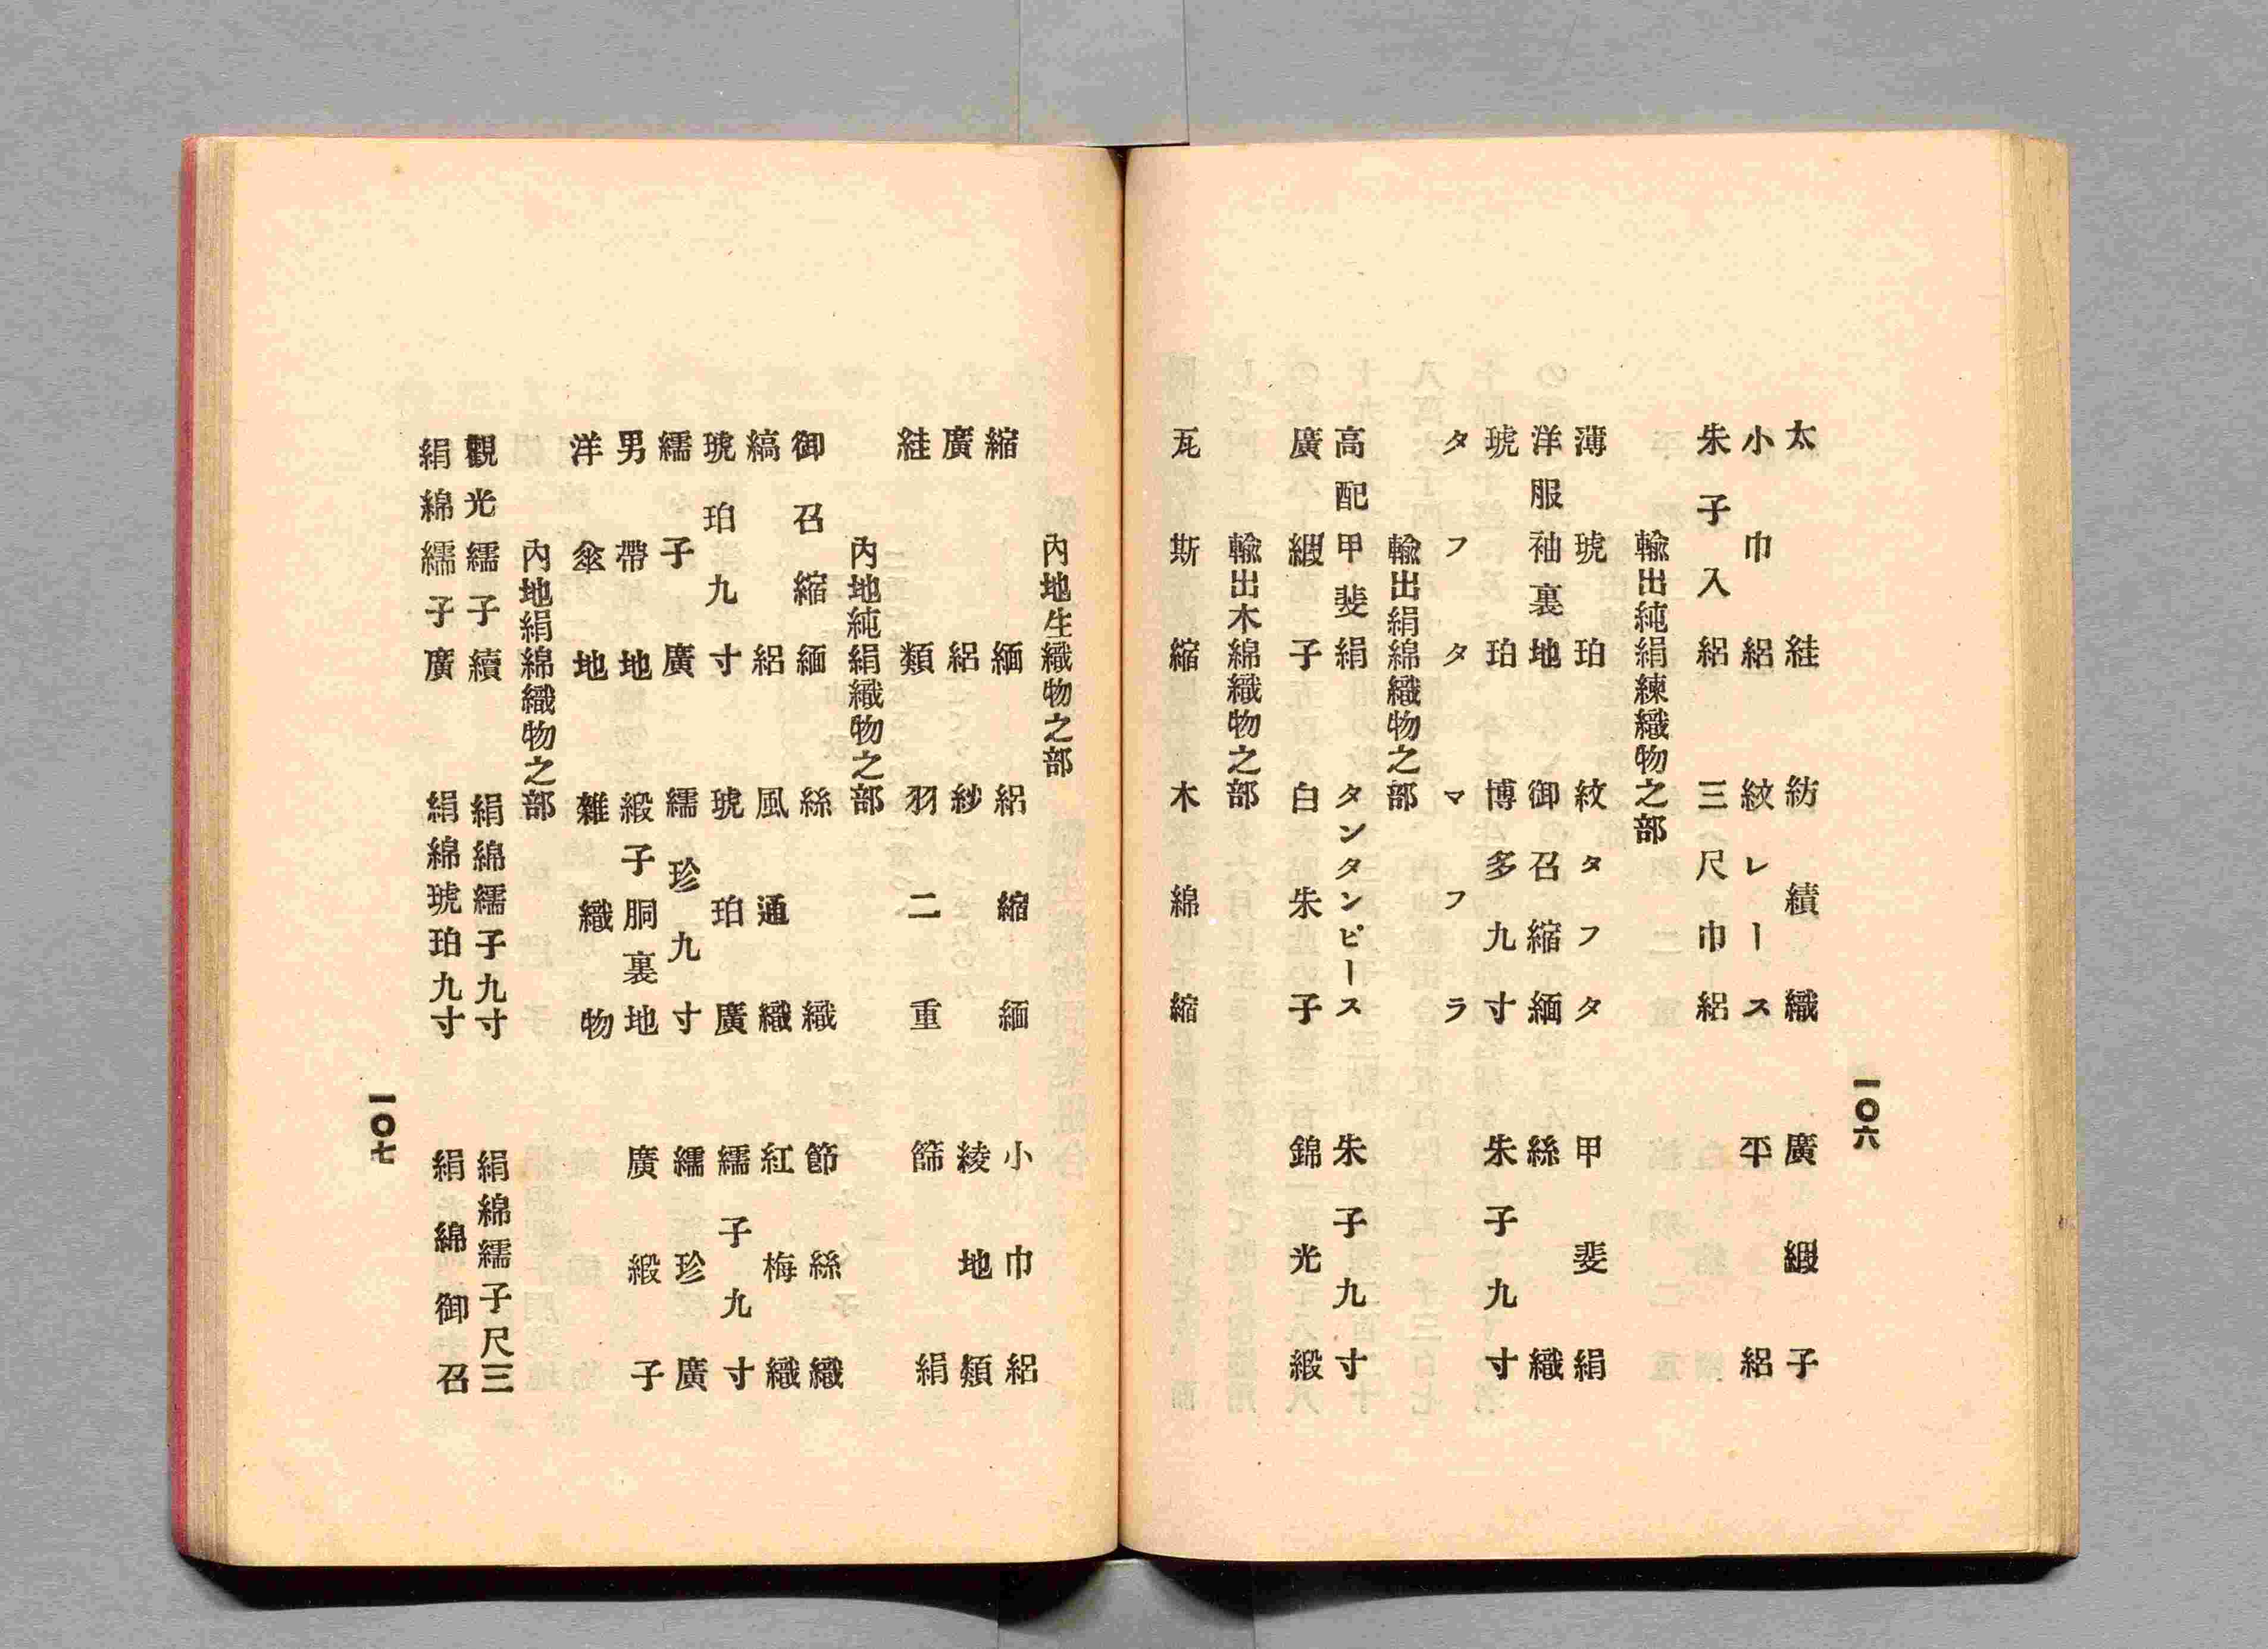 太絓　紡績織　廣緞子
小巾絽　紋レース　平絽
朱子入絽　三尺巾絽
輸出純絹練織物之部
薄琥珀　紋タフタ　甲斐絹
洋服袖裏地　御召縮緬　絲織
琥珀　博多九寸　朱子九寸
タフタ　マフラ
輸出絹綿織物之部
高配甲斐絹　タンタンピース　朱子九寸
廣緞子　白朱子　錦光緞
輸出木綿織物之部
瓦斯縮　木綿縮
一〇六
內地生織物之部
縮緬　絽縮緬　小巾絽
廣絽　紗　綾地類
絓類　羽二重　篩絹
內地純絹織物之部
御召縮緬　絲織　節絲織
縞絽　風通織　紅梅織
琥珀九寸　琥珀廣　繻子九寸
繻子廣　繻珍九寸　繻珍廣
男帶地　緞子胴裏地　廣緞子
洋傘地　雜織物
內地絹綿織物之部
觀光繻子續　絹綿繻子九寸　絹綿繻子尺三
絹綿繻子廣　絹綿琥珀九寸　絹綿御召
一〇七